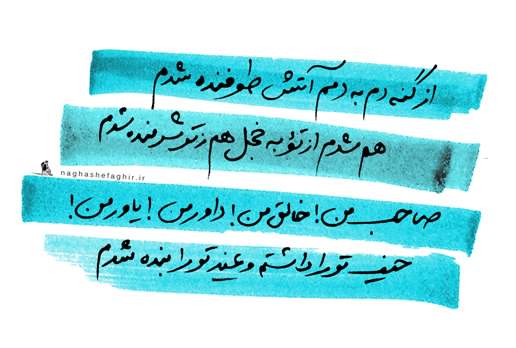 از گنه دم به دمم آتش طوفنده شدم
هم شدم از تو به خجل هم ز تو شرمنده شدم
naghashefaghir.ir
صاحب من! خالق من! داور من! یاور من!
حیف تو را داشتم و غیر تو را بنده شدم